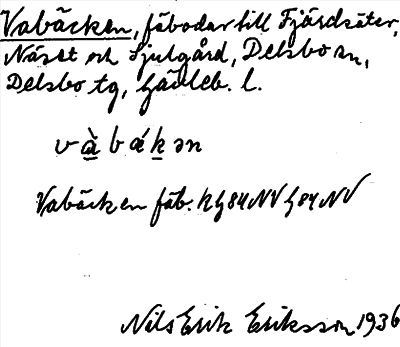 Vabäcken, fäbodar till Fjärdsäter,
Näset och Hjulgård, Delsbo sn,
Delsbo tg, Gävleb. l.
và̱báḵən
Vabäcken fäb. hG84NV G84NV
Nils Erik Eriksson 1936